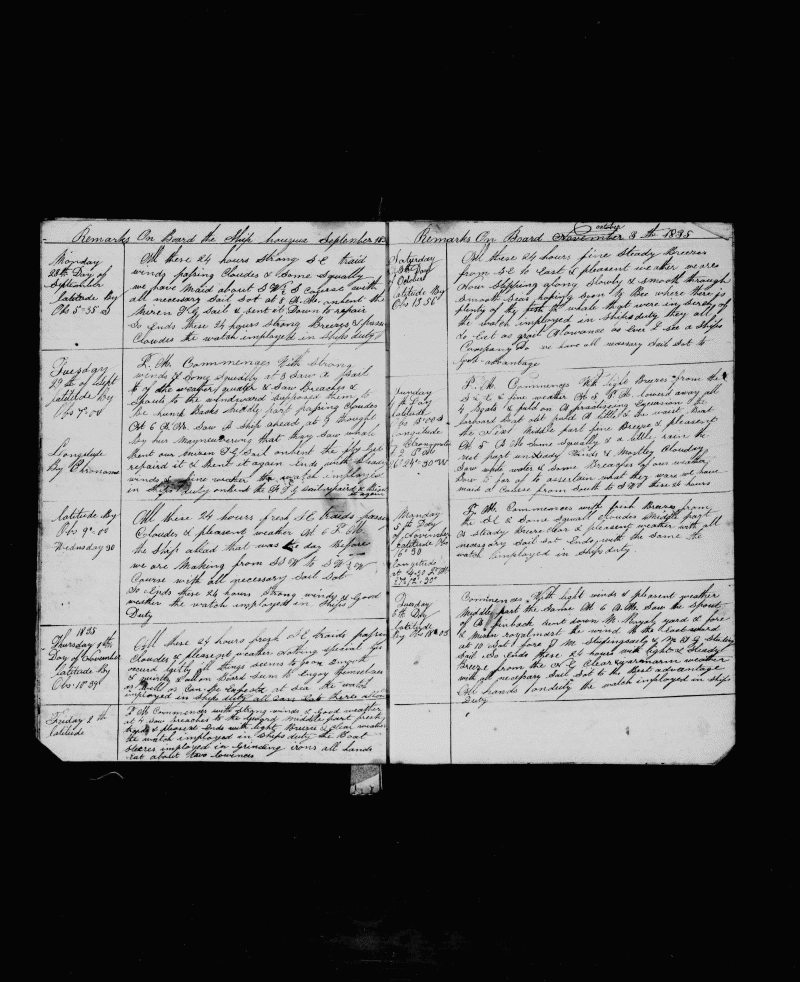 Remarks On Board the Ship September 18
Monday
28th Day of
September
latitude By
Obs 5-35 S
All these 24 hours Strong S E traid
winds pasing Cloudes & Some Squally
we have maid about S W & S Course with
all necessary Sail Sot at 8 A.M. onbent the
Misen T G Sail & Sent it Down to repair
So Ends these 24 hours Strong Breezes &
Cloudes the watch imployed in Ships duty
Tuesday
29th of Sept
latitude By
Obs 7°.04
Longitude
By Chronom
P. M. Commences With Strong
winds & Some Squally at 3 Saw a Sail
of the weather quarter & Saw Breaches &
Spouts to the windward Supposed them to
be hump Backs Middle part pasing Cloudes
At 6 A.M. Saw A Ship ahead at 9 thought
by her maneuvering that they Saw whale
Bent our Misen T G Sail onbent the fly Gib
repaird it & Bent it again Ends with Steady
winds & fine weather the watch imployed
in Ships duty onbent the F T G Sail repaird & Bent
it again
latitude By
Obs 9°.00
Wednsday 30
All these 24 hours fresh S E traids pasing
Cloudes & pleasent weather At 6 P. M.
the Ship alead that was the day Before
we are Making from SSW to SW & W
Course with all necessary Sail Sot
So Ends these 24 hours Strong winds & Good
weather the watch imployed in Ships
Duty
1835
Thursday 1th
Day of November
latitude By
Obs. 10°39
All these 24 hours fresh S E traids pasing
Cloudes & pleasent weather nothing special
ocurd all things seems to goon Smooth
& quietly & all on Board Seem to Enjoy themselves
as well as Can be Expected at Sea the watch
imployed in Ships duty all
Friday 2th
latitude
P. M. Commences with Strong winds & Good weather
at 4 Saw breaches to the leward Middle part fresh
Ends with light Breeze & Clear weather
the watch imployed in Ships duty the Boat
Steeres imployed in Grinding irons all hands
eat about two lowences
Remarks On Board November 3th 1835
October
Saturday
3th Day
of October
latitude By
Obs 13°56
All these 24 hours fine Steady Breezes
from S E to East & pleasent weather we are
now Slipping along Slowly & Smooth through
Smooth Seas hoping Soon to Bee where there is
plenty of the whale that were in Serch of
the watch imployed in Ships duty they all
do Eat as great Allowance as Ever I See a Ships
Company Do we have all necessary Sail Sot to
Good advantage
Sunday
4th Day
latitude
Obs 15°00 S
Longitude
By Chronometer
at 2 P.M.
P. M. Commences With light Breezes from the
S & E & fine weather At 5 P. M. lowerd away all
4 Boats & puld on A practising Excursion the
larbord Boat out puld A little & the waist Boat
the next Middle part fine Breeze & pleasent
At 5 A. M. Some Squally & a little rain the
rest part unsteady Winds & Mostley Cloudy
Saw white water & Some Breaches of our weather
Bow to far of to assertain what they ware we have
maid a Course from South to these 24 hours
Monday
5th Day
of November
latitude Obs
16°30
Longitude
at 4.50 P.M.
P. M. Commences with fresh Breeze from
the S E & Some Squall Cloudes Middle part
A Steady Breeze Clear & pleasent weather with all
necessary Sail Sot Ends with the Same the
watch imployed in Ships duty
Tuesday
6th Day
latitude
By Obs 18°.13
Commences With light winds & pleasent weather
Middle part the Same At 6 A. M. Saw the Spout
of A finback Sent down M. Royal yard & fore
& Misen royalmast the wind to the East ward
at 10 Sot fore T M Studingsails &
Sail So Ends these 24 hours with light & Steady
Breeze from the N E Clear & warm weather
with all necessary Sail Sot to the Best advantage
All hands onduty the watch imployed in Ships
Duty